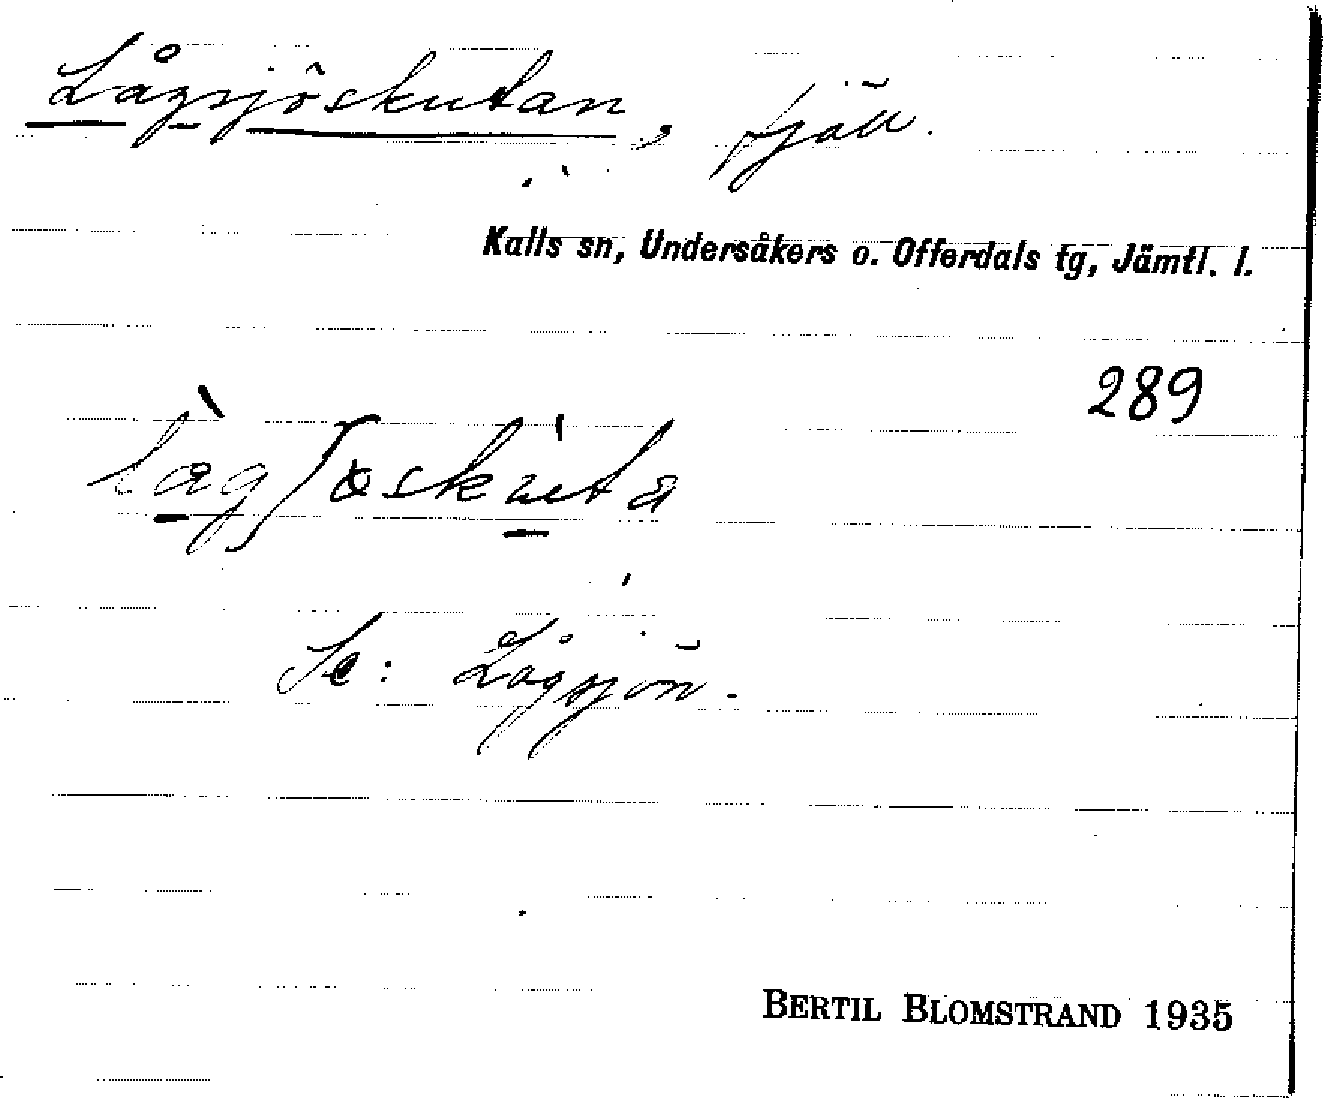 Lågsjöskutan, fjäll.
Kalls sn, Undersåkers o. Offerdals tg, Jämtl. l.
289
làgʃøskùta
Se: Lågsjön.
BERTIL BLOMSTRAND 1935